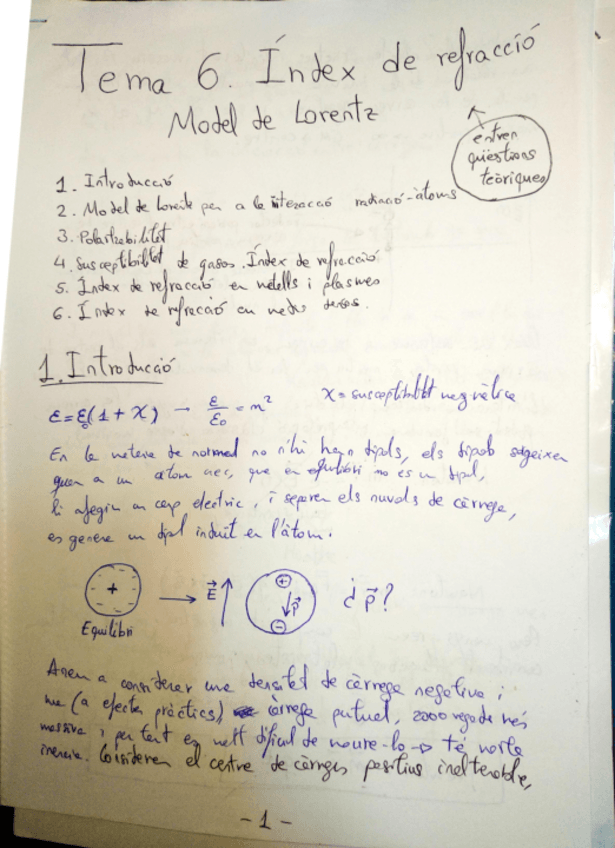 Tema 6. Índex de refracció
Model de Lorentz
entren
qüestions
teòriques
1. Introducció
2. Model de Lorentz per a la interacció radiació-àtoms
3. Polaritzabilitat
4. Susceptibilitat de gasos. Índex de refracció
5. Índex de refracció en metalls i plasmes
6. Índex de refracció en medis densos.
1. Introducció
ε = ε₀(1 + χ) → ε/ε₀ = n²
χ = susceptibilitat magnètica
En la natura de normal no n'hi han dipols, els dipols sorgeixen
quan a un àtom, que en equilibri no és un dipol,
li afegim un camp elèctric, i separem els nuvols de càrrega,
es genera un dipol induït en l'àtom.
+
Equilibri
→ E⃗ ↑
+
↓ p⃗
−
¿ p⃗?
Anem a considerar una densitat de càrrega negativa i
una (a efectes pràctics) càrrega puntual, 2000 vegades més
massiva i per tant és molt difícil de moure-lo → té molta
inèrcia. Considerem el centre de càrregues positius inalterable,
- 1 -